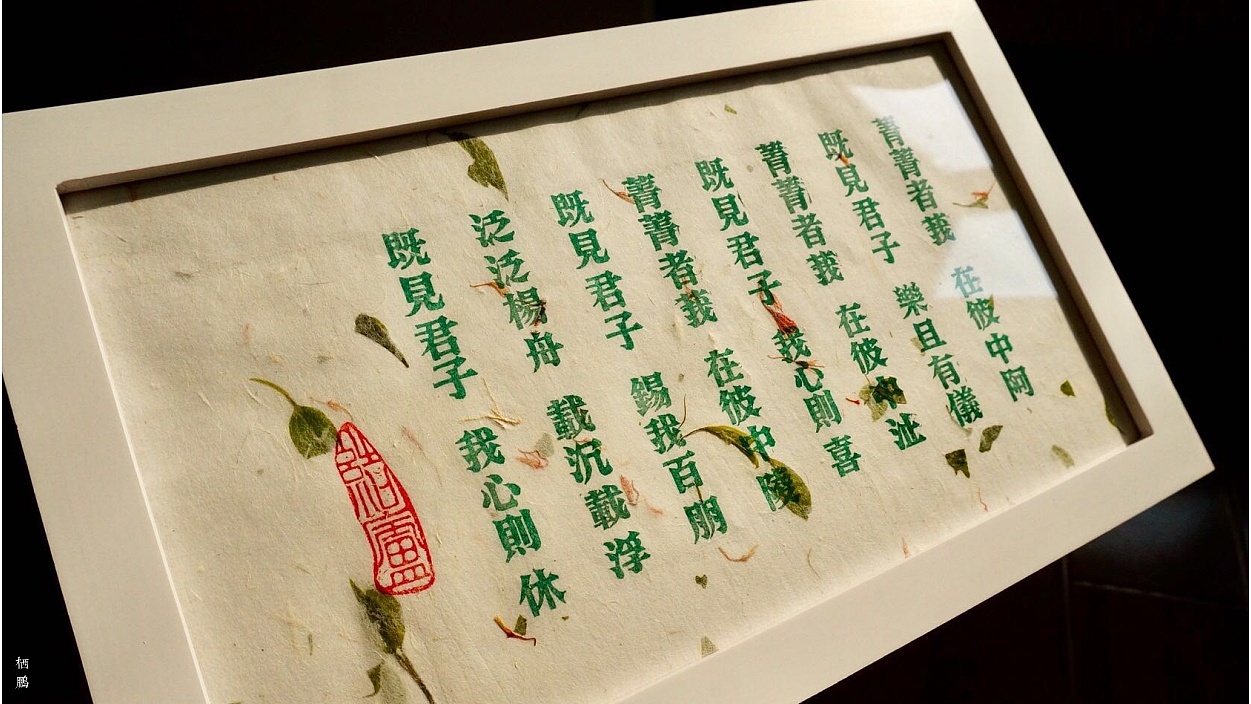 菁菁者莪　在彼中阿
既見君子　樂且有儀
菁菁者莪　在彼中沚
既見君子　我心則喜
菁菁者莪　在彼中陵
既見君子　錫我百朋
泛泛楊舟　載沉載浮
既見君子　我心則休
栖鵬